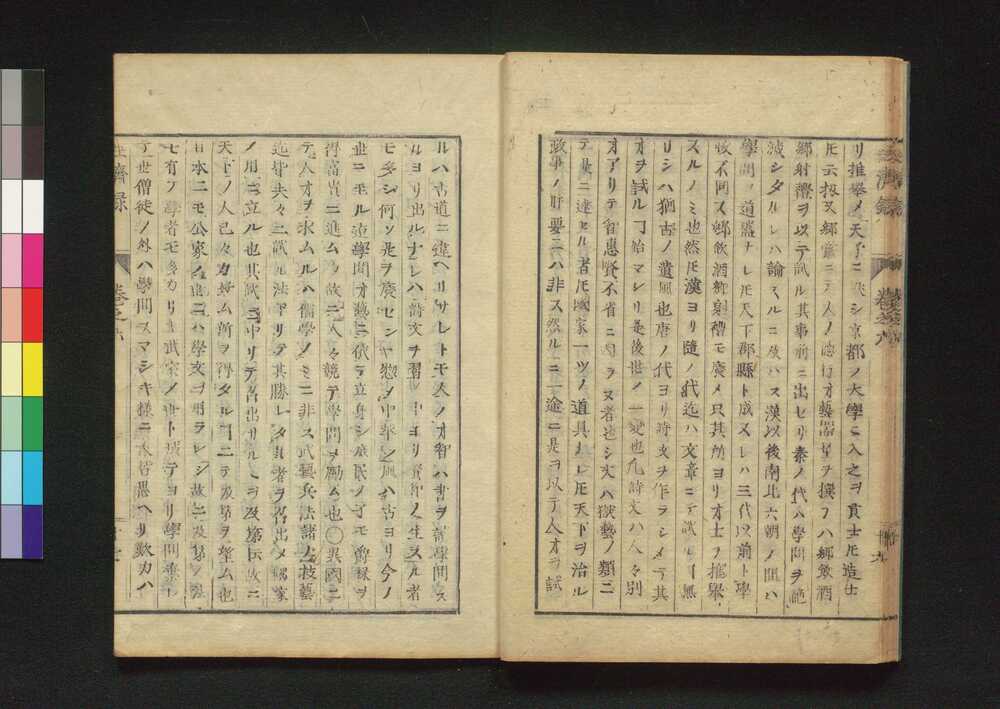 リ推擧メ天子ニ獻シ京都ノ大學ニ入之ヲ貢士𪜈造士
𪜈云扨又郷黨ニテ人ノ德行才藝器量ヲ撰フハ郷飮酒
郷射禮ヲ以テ試ル其事前ニ出セリ秦ノ代ハ學問ヲ絶
滅シタルレハ論スルニ及ハス漢以後南北六朝ノ間ハ
學問ノ道盛ナレ𪜈天下郡縣ト成又レハ三代以前ト學
政不同又郷飮酒郷射禮モ廢メ只其所ヨリ才士ヲ推擧
スルノミ也然𪜈漢ヨリ隨ノ代迄ハ文章ニテ試ルヿ無
リシハ猶古ノ遺風也唐ノ代ヨリ詩文ヲ作ラシメテ其
オヲ試ルヿ始マレリ是後世ノ一變也凡詩文ハ人々別
オアリテ智惠賢不肖ニ因ラヌ者也シ文ハ獄藝ノ類ニ
テ是ニ達セル者𪜈國家一ツノ道具ナレ𪜈天下ヲ治ル
政事ノ肝要ニハ非ス然ルニ一途ニ是ヲ以テ人才ヲ試
ルハ古道ニ違ヘリサレトモ人ノ才智ハ書ヲ讀學問ス
ルヨリ出ルナレハ詩文ヲ習ノ中ヨリ賢知ノ生スル者
モ多シ何ソ是ヲ廢センヤ惣メ中華ノ風ハ古ヨリ今ノ
世ニモル迄學問才藝ニ依テ立身シ庶民ノ子モ爵祿ヲ
得富貴ニ進ムカ故ニ人々競テ學問ヲ勵ム也〇異國ニ
テ人才ヲ求ムルハ儒學ノミニ非ス武藝兵法諸ノ技藝
迄中夫々ニ試ル法アリテ其勝レタル者ヲ召出メ國家
ノ用ニ立ル也其試ニ中リテ召出サルヽヲ及第𪜈云故ニ
天下ノ人己々カ好ム所ヲ得タルヿニテ及第ヲ望ム也
日本ニモ公家ノ世ニハ學文ヲ用ラレシ故ニ及第ノ法
モ有テ學者モ多カリシ武家ノ世ト成テヨリ學問廢レ
テ世僧徒ノ外ハ學問スマシキ樣ニ人皆思ヘリ歎カハ
經濟録
卷之六